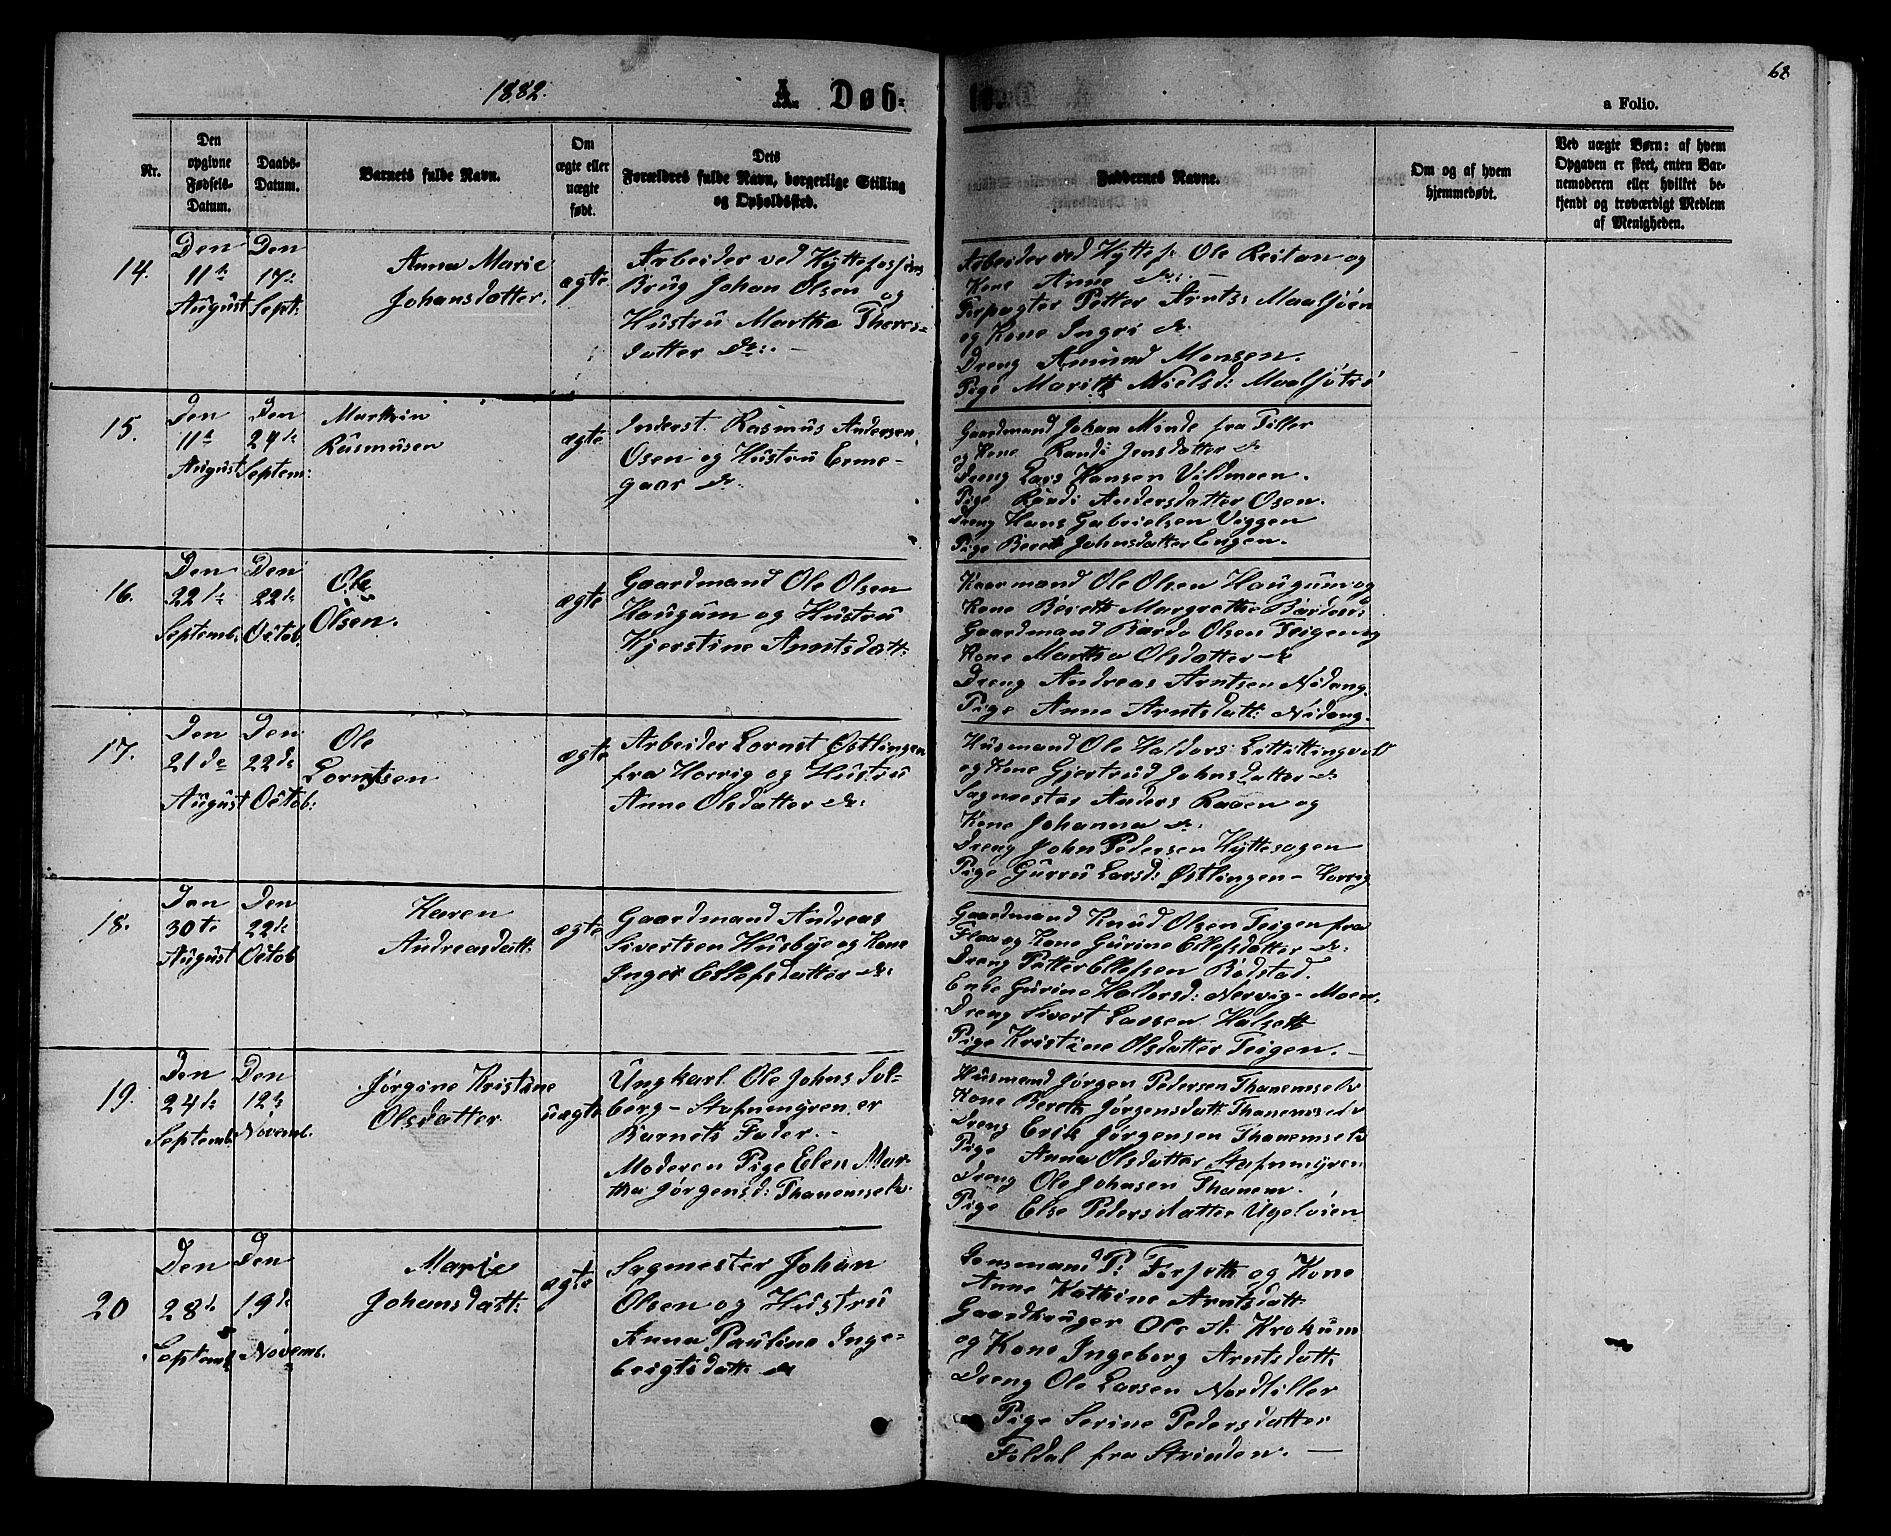 1882.
A Døb-
68
a Folio.
Nr.
Den opgivne Fødsels-Datum.
Daabs-Datum.
Barnets fulde Navn.
Om ægte eller uægte født.
Dets Forældres fulde Navn, borgerlige Stilling og Opholdssted.
Faddernes Navne.
Om og af hvem hjemmedøbt.
Ved uægte Børn: af hvem Opgaven er skeet, enten Barnemoderen eller hvilket bekjendt og troværdigt Medlem af Menigheden.
14.
Den 11te August
Den 17: Sept:
Anna Marie
Johansdatter.
ægte
Arbeider ved Hyttefossens
Brug Johan Olsen og
Hustru Martha Theres-
datter do: —
Arbeider ved Hyttef: Ole Reitan og
Kone Anne do: —
Forpagter Petter Arnts: Maalsjøen
og Kone Ingri do.
Dreng Amund Monsen.
Pige Maritt Nielsd: Maalsjøen
15.
Den 11te August
Den 24de Septem:
Marthin
Rasmusen
ægte
Inderst. Rasmus Andersen
Osen og Hustru Erme-
gaar do.
Gaardmand Johan Minde fra Tiller
og Kone Randi Jensdatter do
Dreng Lars Hansen Vildmoen.
Pige Randi Andersdatter Osen.
Dreng Hans Gabrielsen Viggen
Pige Berett Johnsdatter Engen.
16.
Den 22de Septemb.
Den 22de Octob.
Ole
Olsen.
ægte
Gaardmand Ole Olsen
Haugum og Hustru
Kjerstine Arntsdatt:
Kaarmand Ole Olsen Haugum og
Kone Berett Margrethe Bardos:
Gaardmand Bardo Olsen Teigen og
Kone Martha Olsdatter do
Dreng Andreas Arntsen Nideng.
Pige Anne Arntsdatt: Nideng.
17.
Den 21de August
Den 22de Octob:
Ole
Lorntsen
ægte
Arbeider Lornt Østlingen
fra Horrig og Hustru
Anne Olsdatter do:
Husmand Ole Haldors: Littlitingvold
og Kone Gjertrud Johnsdatter do
Sagmester Anders Raaen og
Kone Johanna do.
Dreng John Pedersen Hyttesagen
Pige Gurru Larsd: Østlingen - Horrig
18.
Den 30te August
Den 22de Octob
Karen
Andreasdatt:
ægte
Gaardmand Andreas
Sivertsen Husbye og Kone
Inger Ellefsdatter do:
Gaardmand Knud Olsen Teigen fra
Flaa og Kone Gurine Ellefsdatter do:
Dreng Petter Ellefsen Rødstad.
Enke Gurine Haldorsd: Nervig - Moen.
Dreng Sivert Larsen Halsett
Pige Kristine Olsdatter Teigen. —
19.
Den 24de Septemb.
Den 12te Novemb.
Jørgine Kristine
Olsdatter
uægte
Ungkarl Ole Johns Sol-
berg - Stafnmyren er
Barnets Fader. —
Moderen Pige Elen Mar-
tha Jørgensd: Thanemselv.
Husmand Jørgen Pedersen Thanemselv
Kone Berett Jørgensdatt: Thanemselv
Dreng Erik Jørgensen Thanemselv
Pige Anna Olsdatter Stafnmyren
Dreng Ole Johnsen Thanem.
Pige Else Pedersdatter Ugelvien
20
Den 28de Septemb.
Den 19de Novemb.
Marie
Johansdatt:
ægte
Sagmester Johan
Olsen og Hustru
Anna Pauline Inge-
brigtsdatt: do
Lensmand P: Forseth og Kone
Anne Kathrine Arntsdatt.
Gaardbruger Ole A. Krokum
og Kone Ingeborg Arntsdatt:
Dreng Ole Larsen Nordtiller
Pige Serine Pedersdatter
Foldal fra Strinden. —